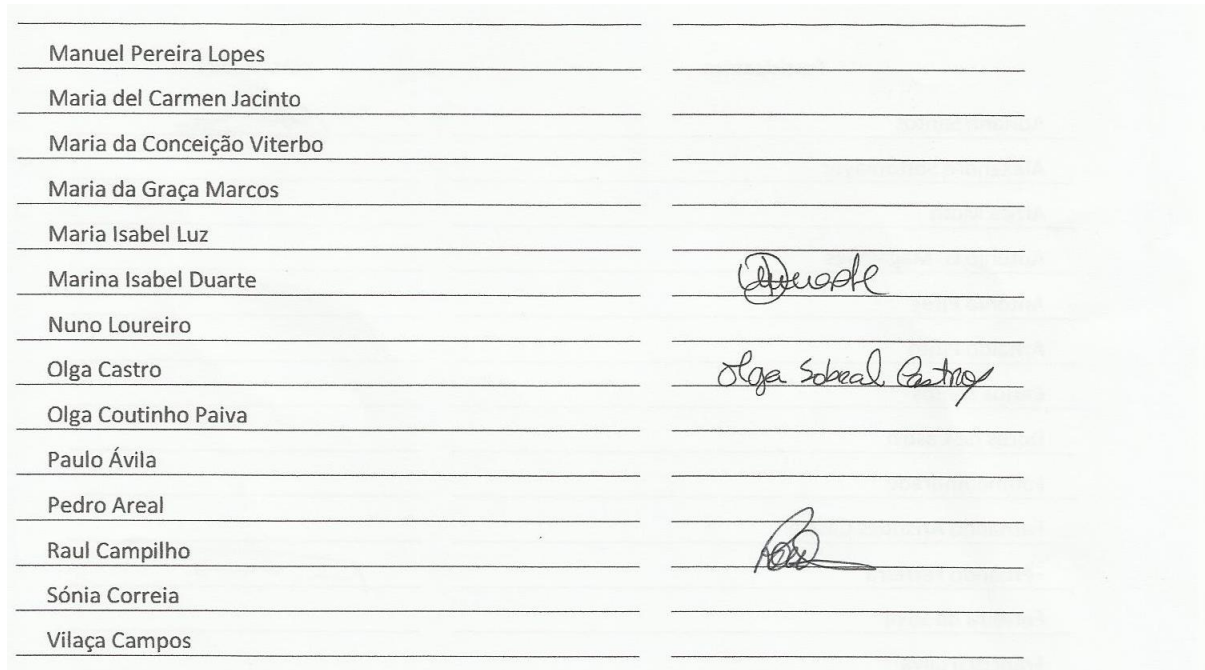 Manuel Pereira Lopes
Maria del Carmen Jacinto
Maria da Conceição Viterbo
Maria da Graça Marcos
Maria Isabel Luz
Marina Isabel Duarte
Nuno Loureiro
Olga Castro Olga Sobral Castro
Olga Coutinho Paiva
Paulo Ávila
Pedro Areal
Raul Campilho
Sónia Correia
Vilaça Campos